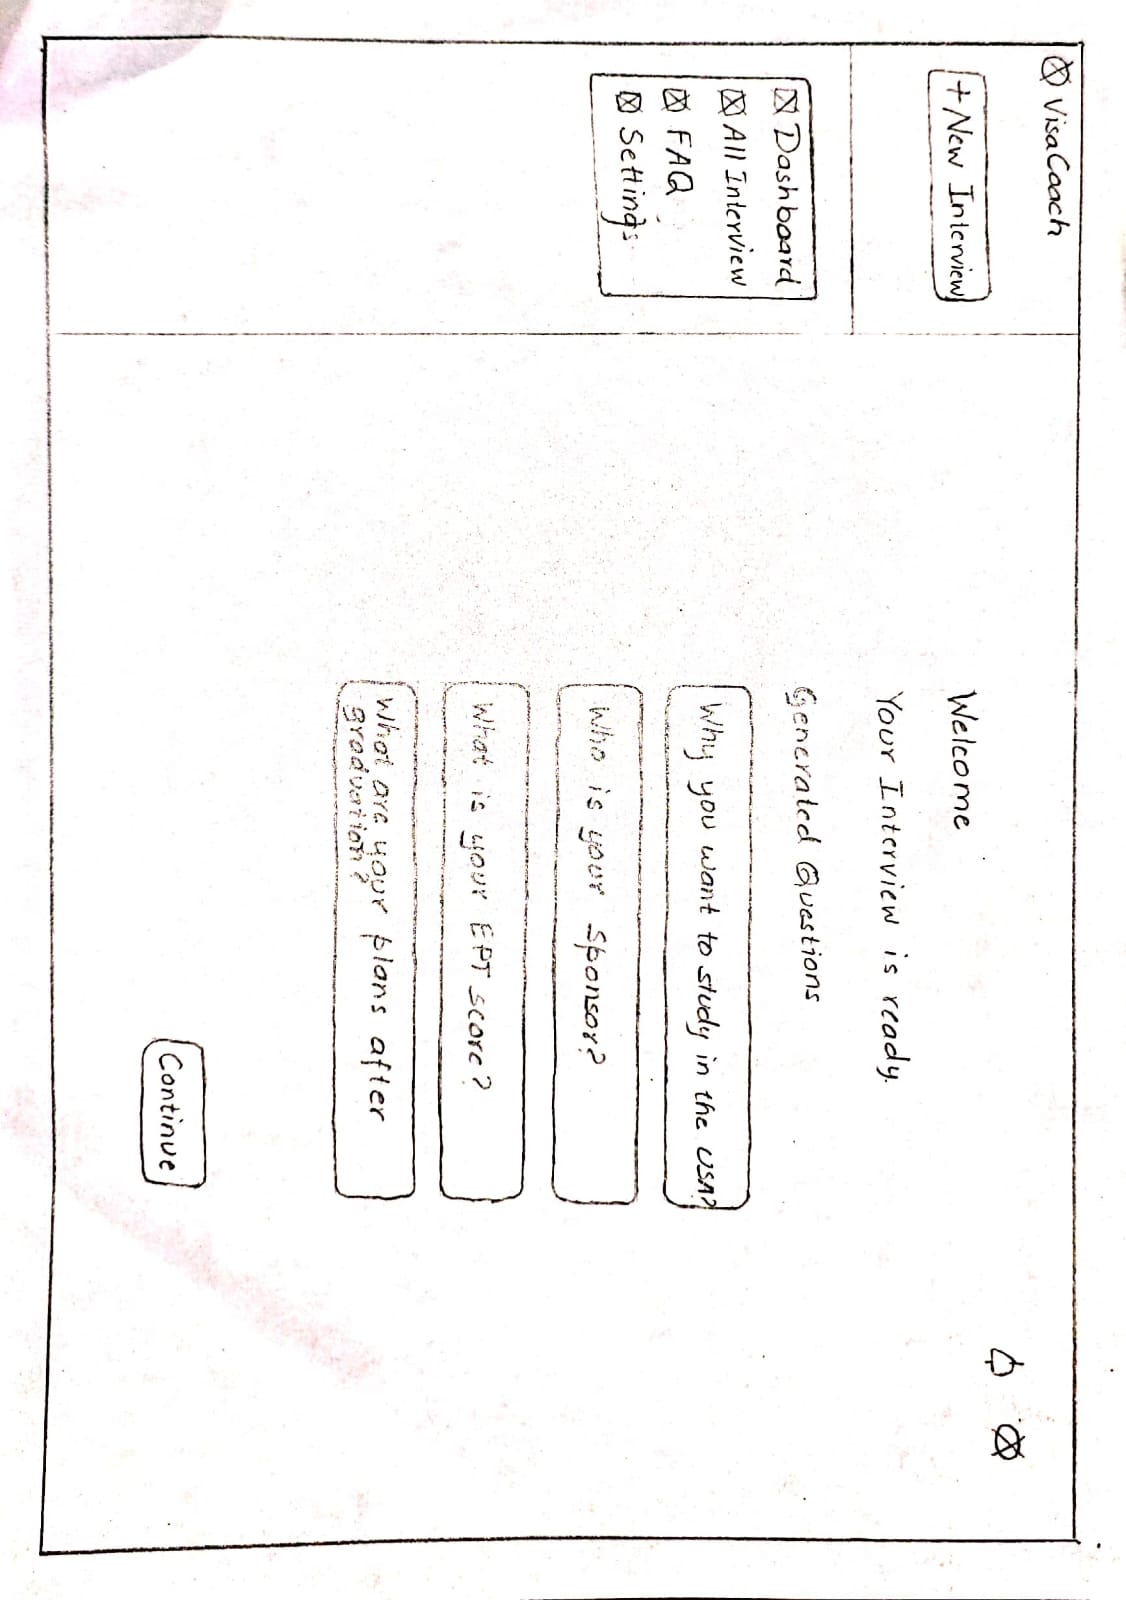 VisaCoach
+ New Interview
Dashboard
All Interview
FAQ
Settings
Welcome
Your Interview is ready.
Generated Questions
Why you want to study in the USA?
Who is your Sponsor?
What is your EPT score?
What are your plans after
graduation?
Continue